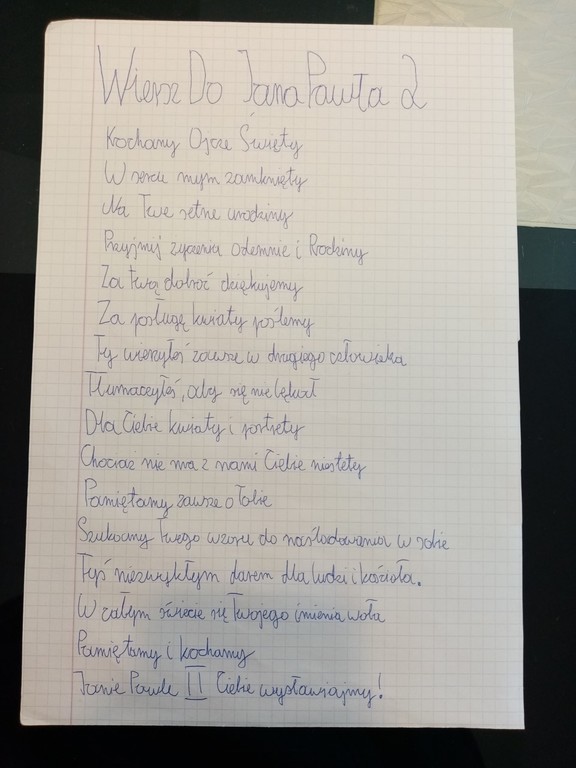 Wiersz Do Jana Pawła 2
Kochany Ojcze Święty
W sercu mym zamknięty
Na Twe setne urodziny
Przyjmij życzenia odemnie i Rodziny
Za twą dobroć dziękujemy
Za posługę kwiaty poślemy
Ty wierzyłeś zawsze w drugiego człowieka
Tłumaczyłeś, aby się nie lękał
Dla Ciebie kwiaty i portrety
Chociaż nie ma z nami Ciebie niestety
Pamiętamy zawsze o Tobie
Szukamy Twego wzoru do naśladowania w sobie
Tyś niezwykłym darem dla ludzi i kościoła.
W całym świecie się Twojego imienia woła
Pamiętamy i kochamy
Janie Pawle II Ciebie wysławiajmy!